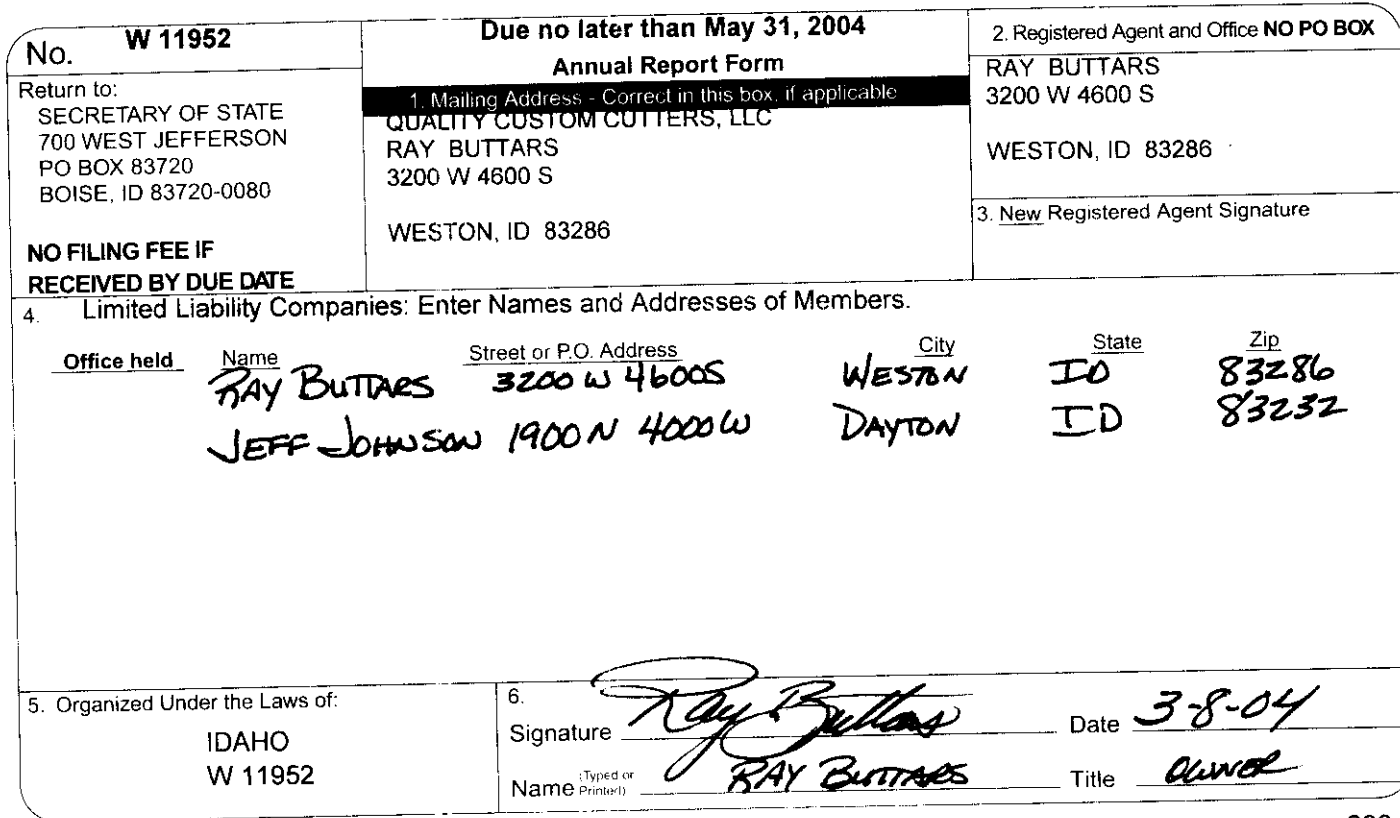 No. W 11952
Return to:
SECRETARY OF STATE
700 WEST JEFFERSON
PO BOX 83720
BOISE, ID 83720-0080
NO FILING FEE IF
RECEIVED BY DUE DATE
Due no later than May 31, 2004
Annual Report Form
1. Mailing Address - Correct in this box, if applicable
QUALITY CUSTOM CUTTERS, LLC
RAY BUTTARS
3200 W 4600 S
WESTON, ID 83286
2. Registered Agent and Office NO PO BOX
RAY BUTTARS
3200 W 4600 S
WESTON, ID 83286
3. New Registered Agent Signature
4. Limited Liability Companies: Enter Names and Addresses of Members.
Office held Name Street or P.O. Address City State Zip
RAY BUTTARS 3200 W 4600S WESTON ID 83286
JEFF JOHNSON 1900 N 4000 W DAYTON ID 83232
5. Organized Under the Laws of:
IDAHO
W 11952
6.
Signature Ray Buttars Date 3-8-04
Name (Typed or Printed) RAY BUTTARS Title OWNER